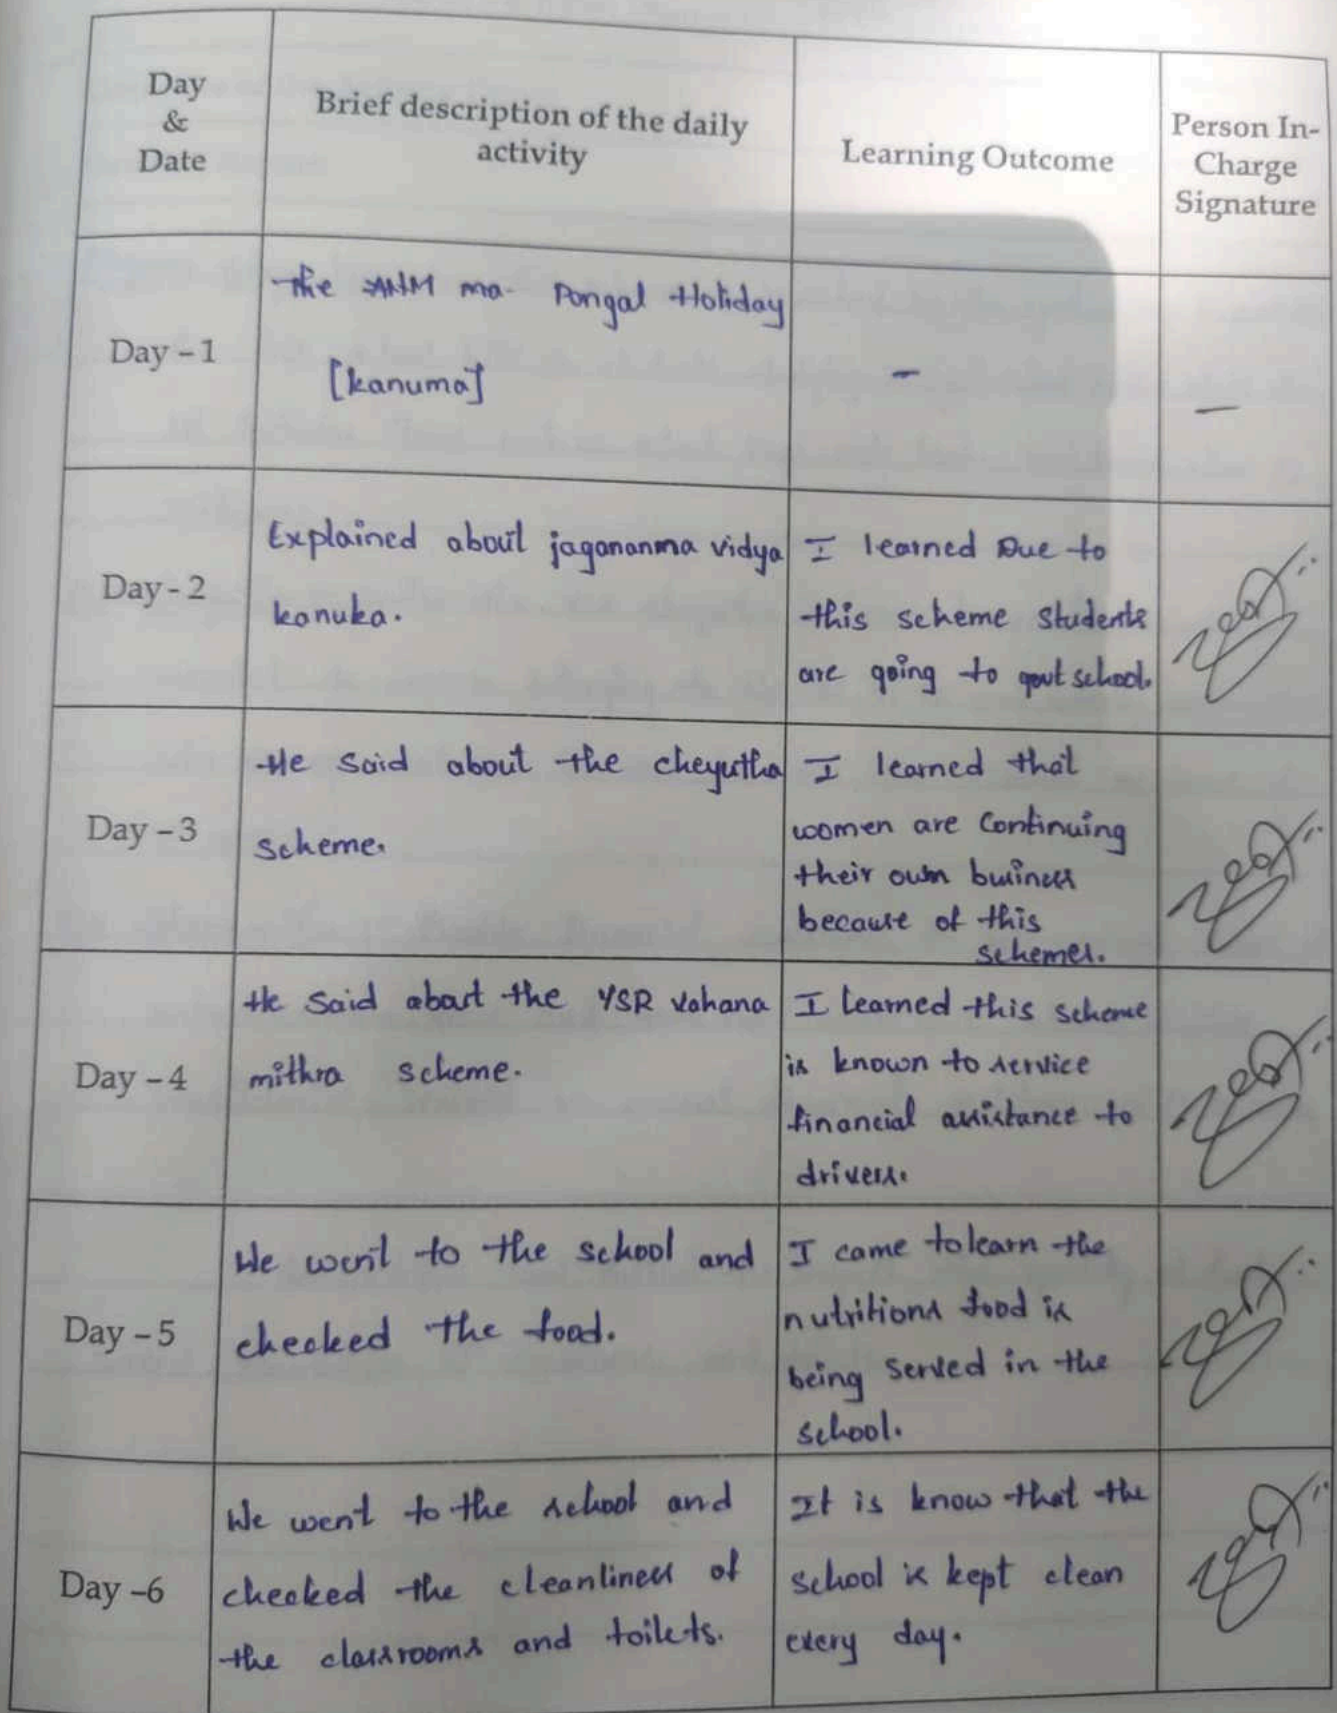 Day
&
Date
Brief description of the daily
activity
Learning Outcome
Person In-
Charge
Signature
Day - 1
The ANM ma- Pongal Holiday
[kanuma]
-
-
Day - 2
Explained about jagananma vidya
kanuka.
I learned Due to
this scheme students
are going to govt school.
Day - 3
He said about the cheyutha
scheme.
I learned that
women are continuing
their own business
because of this
schemes.
Day - 4
He said about the YSR vahana
mithra scheme.
I learned this scheme
is known to service
financial assistance to
drivers.
Day - 5
We went to the school and
checked the food.
I came to learn the
nutritions food is
being served in the
school.
Day -6
We went to the school and
checked the cleanliness of
the classrooms and toilets.
It is know that the
school is kept clean
every day.